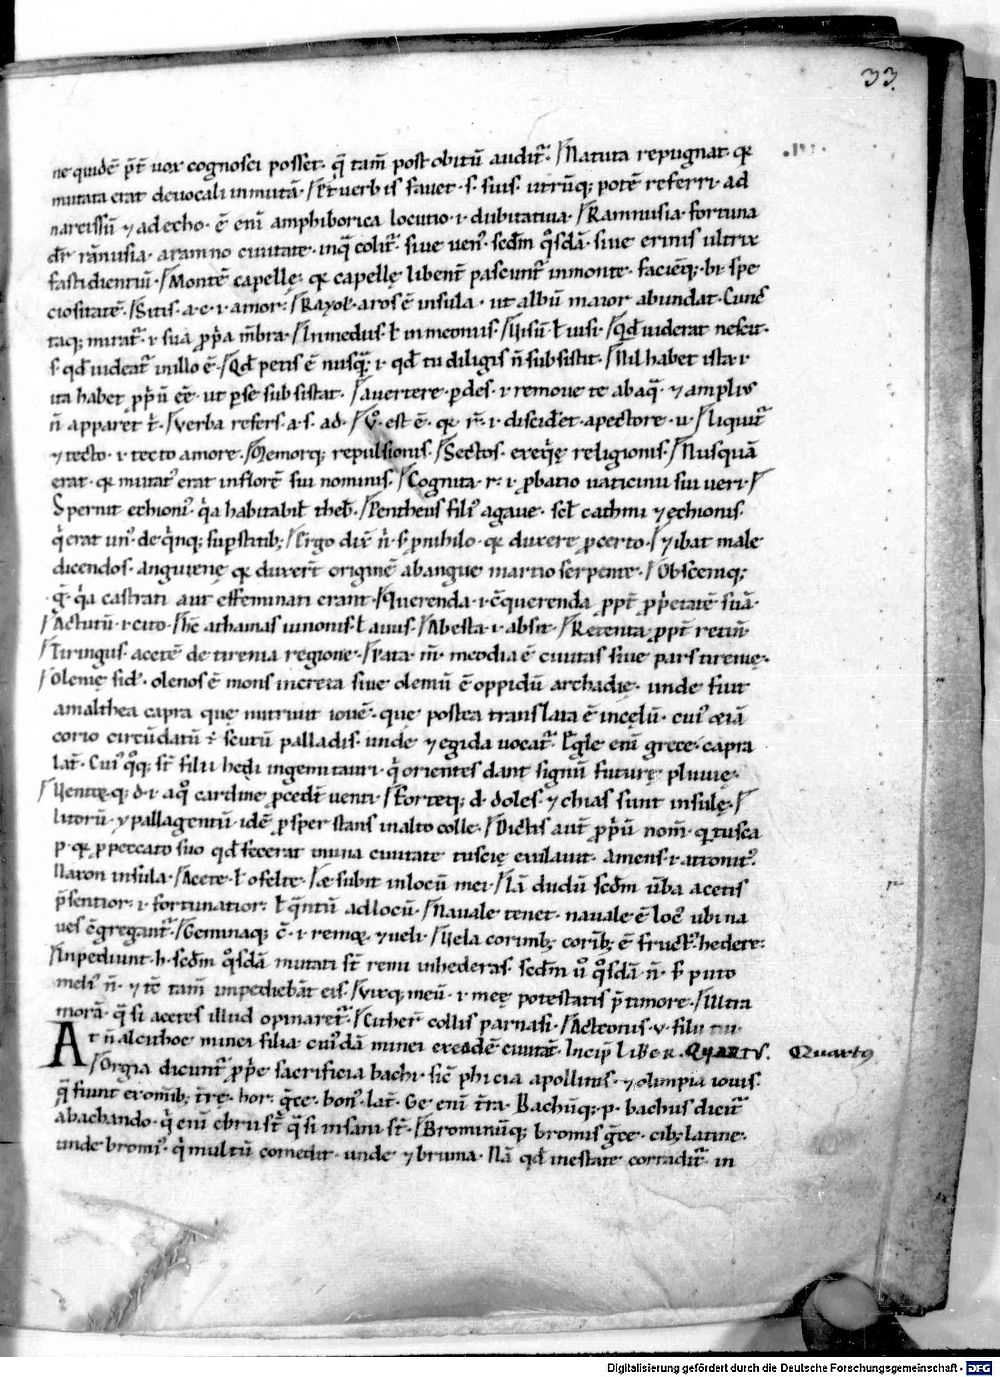 33
ne quidē p̄t̄ uox cognosci posset. q̄ tam̄ post obitū audit᷑. Natura repugnat. q̨
mutata erat de uocali in mutā. Et uerbis fauet. s. suis. utrūq; potē referri. ad
narcissū ⁊ ad echo. ē eni amphiborica locutio .i. dubitatiua. Ramnusia. fortuna
dr̄ rānusia. a ramno ciuitate. in q̄ colit᷑. siue uen᷒. sedm̄ q̊sdā. siue erinis ultrix
fastidientiū. Montē capellę. q̨ capellę libent̄ pascunt᷑ in monte. faciēq; bi spe
ciositatē. Sitis .a.c.i. amor. Rayol. aros ē insula. ut albū maior abundat. Cunc
taq; mirat᷑ .i. sua p̄pa mbra. In medus. ł in meonus. Uisū ł uisi. Qd̄ uiderat nescit.
s. qd̄ uideat᷑ in illo ē. Qd̄ petis ē nusq̄. i. qd̄ tu diligis n̄ subsistit. Nil habet ista .i.
ita habet p̄p̄ū ēē. ut p se subsistat. Auertere. pdes. i. remoue te ab aq̄. ⁊ amplius
n̄ apparet t᷑. Verba refers .a.s. ad. V̊. est ē. q̨ r̄. i. discidet a pectore. u. Liquit᷑
⁊ tecto. i. tecto amore. Memorq; repulsionis. Sectos. exeq̨ę religionis. Nusquā
erat. q̨ mutat᷒ erat in florē sui nominis. Cognita. r. i. pbatio uaticinii sui ueri.
Spernit echioni᷒. q̇a habitabił theb. Pentheus fili᷒ agaue. scł cathmi ⁊ echionis.
q̇ erat un᷒. de q̇nq; supstitib; Ergo dix n̄. s. p nihilo. q̨ duxere p certo. ⁊ ibat male
dicendos. anguienę q̨ duxert̄ originē ab angue martio serpente. Obscenuq;
g̊. q̇a castrati aut effeminati erant. Querenda .i. cq̄uerenda ppt̄ p̄p̄ietatē suā.
Actutū .i. cito. Hc̄ athamas iunonis. ł auus. Abesta .i. absit. Retenta ppt̄ retin̄
Tiringus. acetē de tirenia regione. Pata. m̄. meodia ē ciuitas siue pars tirenię.
Olenię sid᷒. olenos ē mons in creta siue olenū ē oppidū archadię. unde fuit
amalthea capra que nutriuit iouē. que postea translata ē in cęlū. cui᷒ etiā
corio circūdatū ē scutū palladis. unde ⁊ egida uocat᷑. Egle eni grece. capra
lat̄. Cui᷒ q̊q; st̄ filii hedi in geni tauri. q̇ orientes dant signū futurę pluuię.
Uentęq; d. i. a q̊ cardine pcedt̄ uenti. Forteq; d. doles. ⁊ chias sunt insulę.
litorū. ⁊ pallagentū. idē psper stans in alto colle. Dictis aut p̄p̄ū nom̄. q tusca
p. q̨ p peccato suo qd̄ fecerat in una ciuitate tuscię exilauit. Amens. i. attonit᷒.
Naxon insula. Acete. ł ofelte. Ac subit in locū mei. Nā dudū sedm̄ uba acetis
p̄sentior. i. fortunatior. ł q̄ntū ad locū. Nauale tenet. nauale ē loc᷒ ubi na
ues cḡregant᷑. Geminaq; c̄. i. remęq ⁊ ueli. Uela corimb; corib; ē fruct᷒ hedere:
Inpediunt. h. sedm̄ q̊sdā mutati st̄ remi in hederas. sedm̄ ů q̊sdā n̄. s. puto
meli᷒ n̄. ⁊ tē tam̄ impediebāt eis. Virq; meū. i. meę potestatis p̄ timore. Ultra
morā. q̄ si acetes illud opinaret᷑. Citheʳ collis parnasi. Acteonis. v. filii tui.
At n̄ alcithoe minei filia cui᷒dā minei exeadē ciuitat. Incip̄ LIBER. QUARTUS. Quartus
Orgia dicunt᷑ p̄p̄e sacrificia bachi. sic̄ phicia apollinis. ⁊ olimpia iouis.
q̄ fiunt ex omib; tr̄ę. hor. gr̄ce. bon᷒. lat̄. Ge eni tr̄a. Bachūq; p. bachus dicit᷑
a bachando. q̇ eni ebrii st̄ q̄si insani st̄. Brominūq; bromis gr̄ce. cib; latine.
unde bromi᷒. q̇ multū comedit. unde ⁊ bruma. Nā qd̄ in estate corradit᷑. in
Digitalisierung gefördert durch die Deutsche Forschungsgemeinschaft - DFG